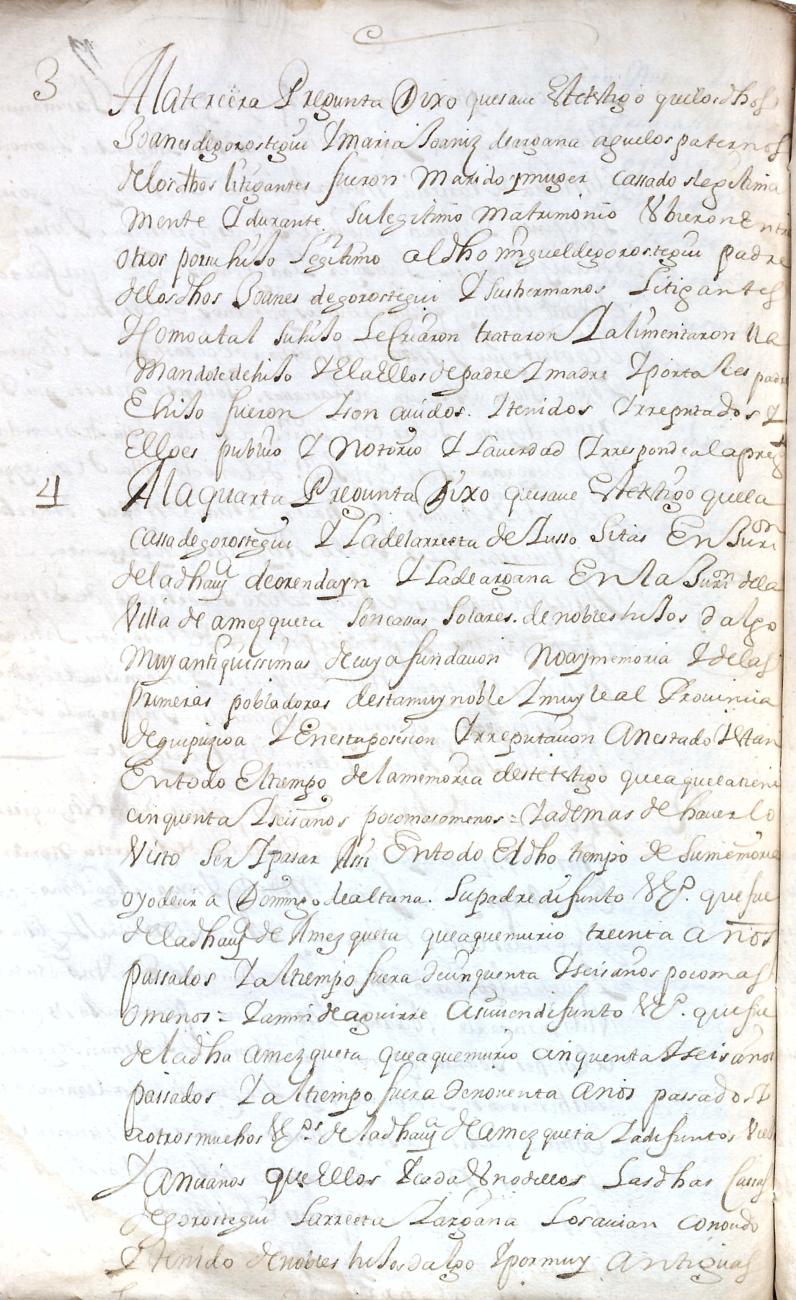 3 A la tercera Pregunta Dixo que saue este testigo que los dhos
Joanes de gorostegui y maria Joaniz de argana aguelos paternos
de los dhos litigantes fueron Marido y muger cassados legitima
mente y durante su legitimo matrimonio Vbieron entre
otros por su hijo legitimo al dho miguel de gorostegui padre
de los dhos Joanes de gorostegui y sus hermanos Litigantes
Y como a tal su hijo le criaron trataron y alimentaron lla
mandole de hijo y el a ellos de padre y madre y por tales padre
E hijo fueron y son auidos. y tenidos y rreputados y
Ello es publico y notorio y la uerdad y rresponde a la preg
4 A la quarta Pregunta Dixo que saue este testigo que la
cassa de gorostegui y la de larreeta de suso sitas En Juri on
de la dha uª de orendayn y la de argana En la Juri on de la
Villa de amezqueta son cassas solares. de nobles hijos dalgo
muy antiquissimas de cuya fundacion no ay memoria y de las
primeras pobladoras desta muy noble y muy leal Prouincia
de guipuzcoa y En esta posesion y rreputacion an estado y estan
En todo El tiempo de la memoria deste testigo que a que la tiene
cinquenta y seis años poco mas o menos = y ademas de hauerlo
Visto ser y pasar assi En todo El dho tiempo de su memoria
oyo decir a Domingo de altuna. su padre difunto Vº. que fue
de la dha uª de Amezqueta que a que murio treinta años
passados y al tiempo fuera de cinquenta y seis años poco mas
o menos = y a mn de aguirre assi mismo difunto Vº. que fue
de la dha amezqueta que a que murio cinquenta y seis años
passados y al tiempo fuera de nouenta años passados y
a otros muchos Vºs de la dha uª de amezqueta ya difuntos Vie
y ancianos que Ellos y cada Vno dellos Las dhas Cassas
de gorostegui Larreeta y argana Los auian conocido
y tenido de nobles hijos dalgo y por muy antiguas